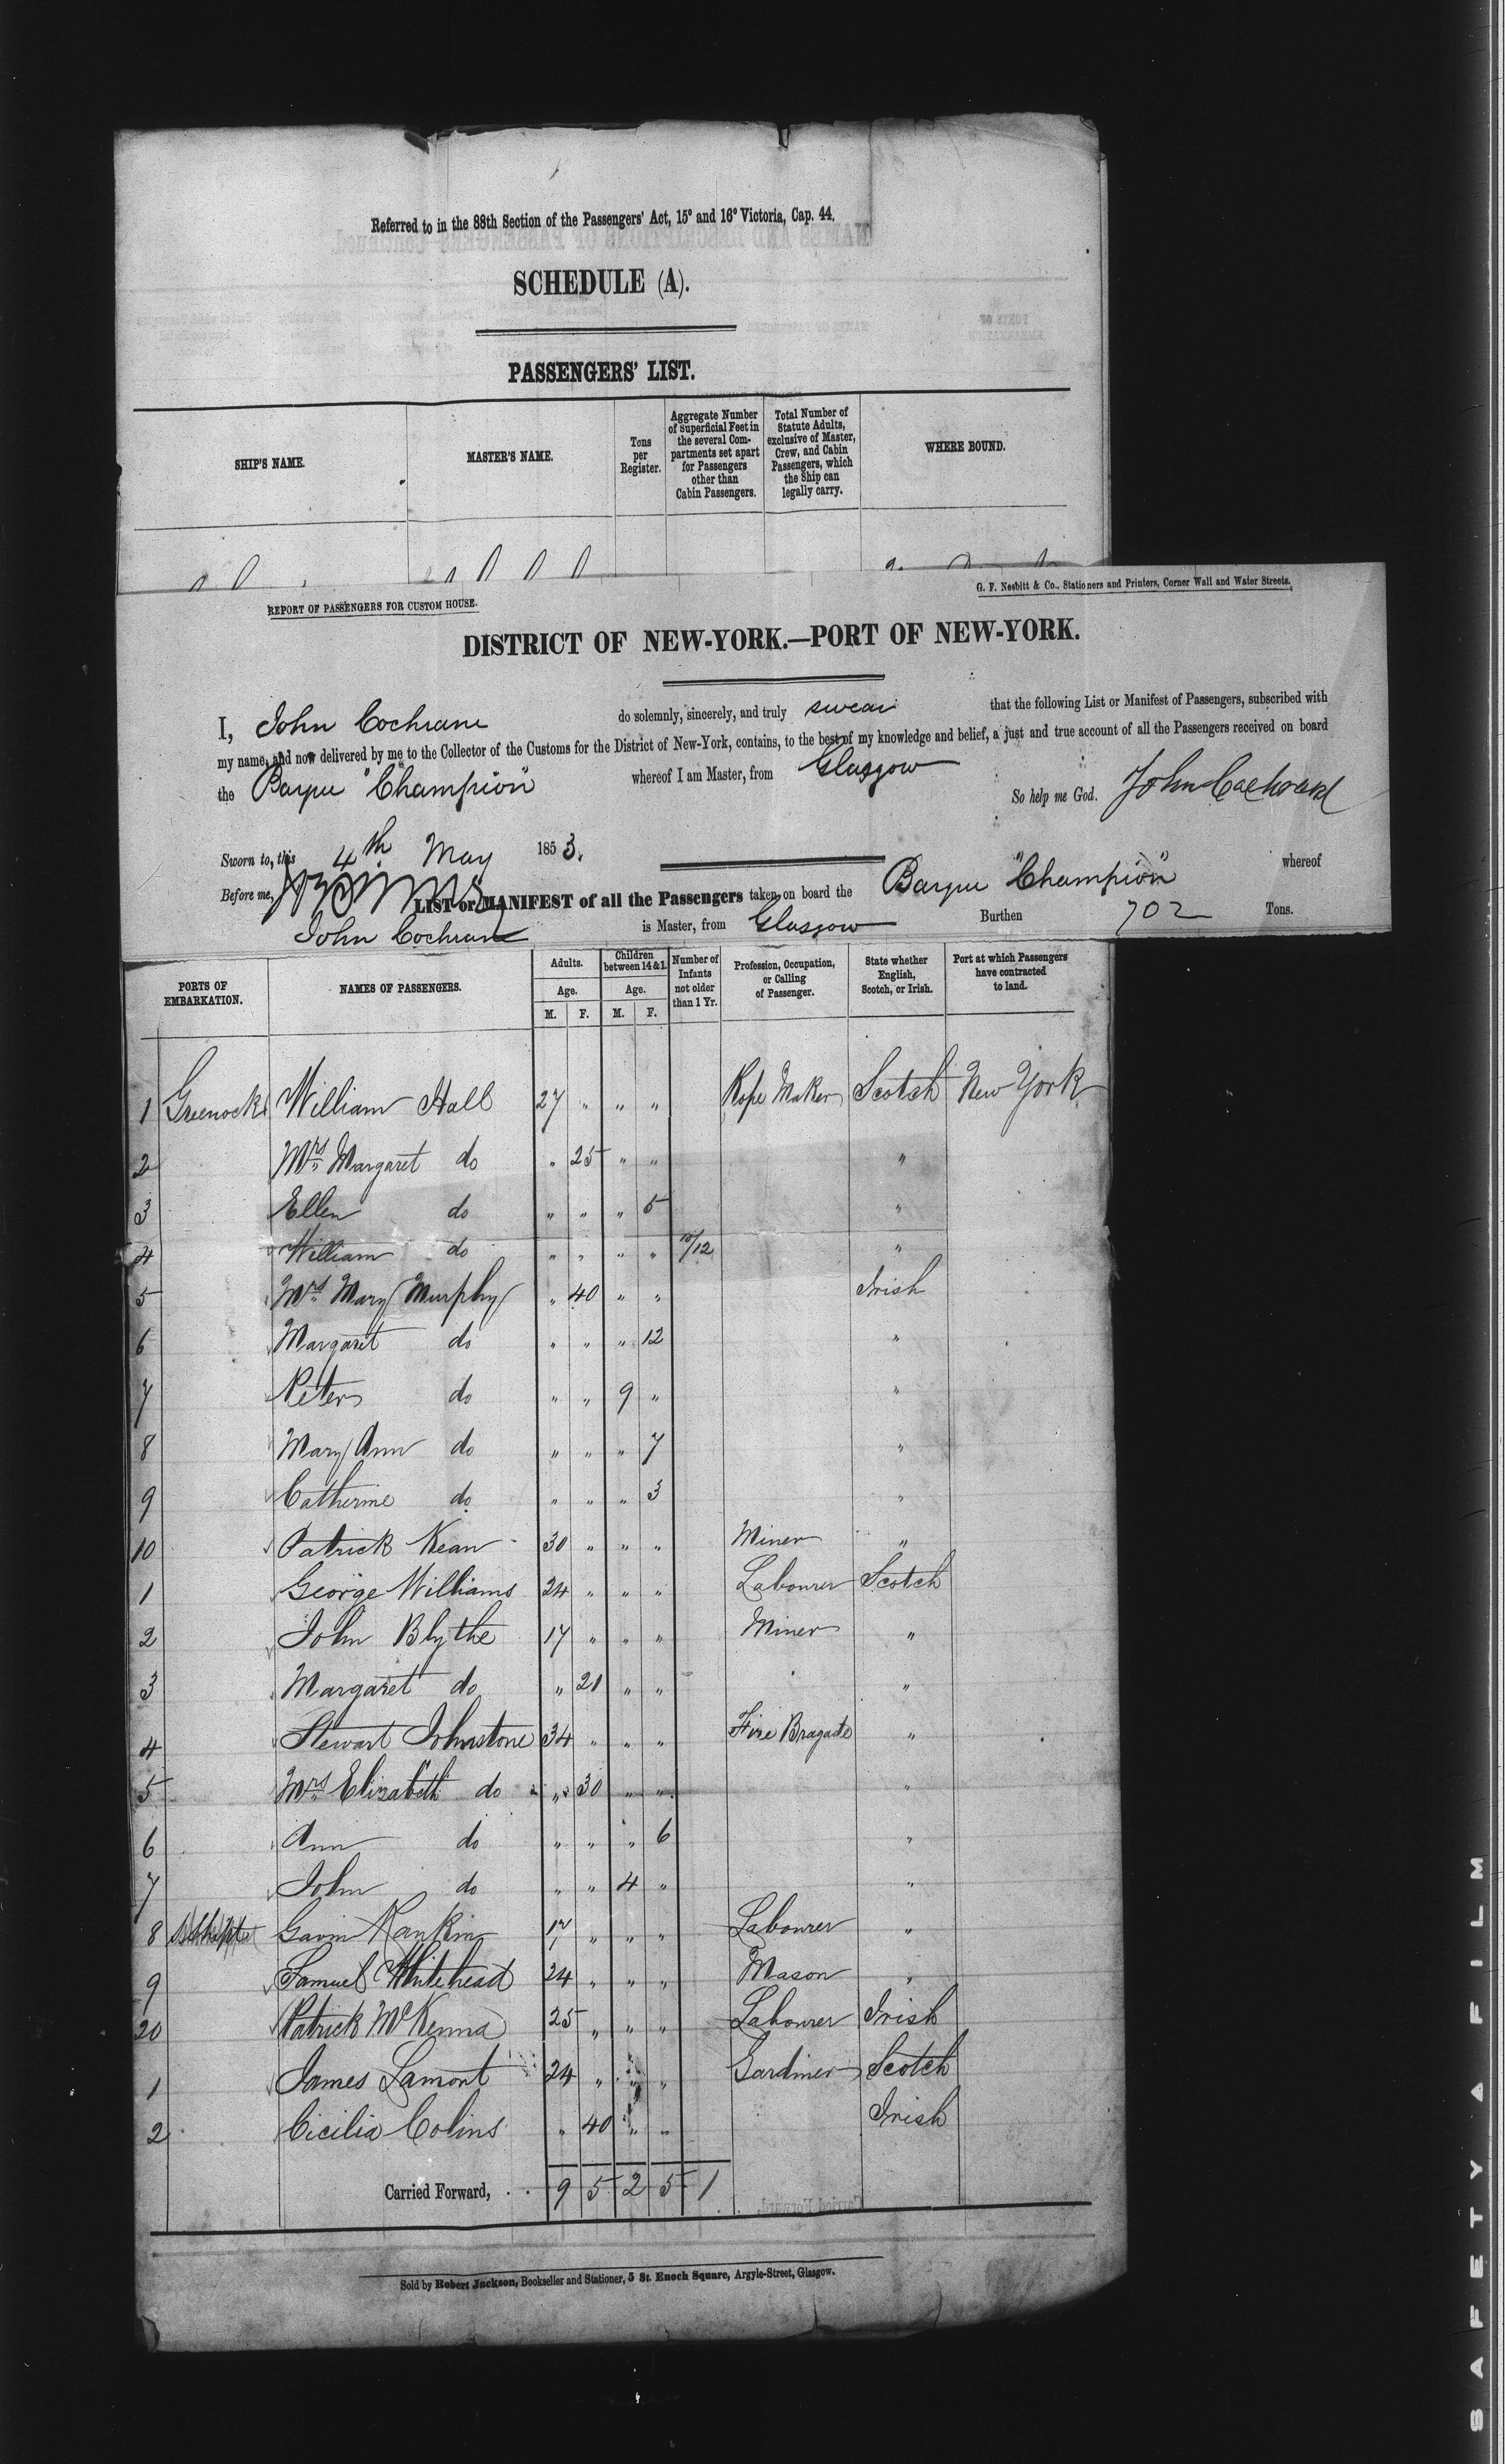 Referred to in the 88th Section of the Passengers' Act, 15° and 16° Victoria, Cap. 44.
SCHEDULE (A).
PASSENGERS' LIST.
SHIP'S NAME. MASTER'S NAME. Tons per Register. Aggregate Number of Superficial Feet in the several Compartments set apart for Passengers other than Cabin Passengers. Total Number of Statute Adults, exclusive of Master, Crew, and Cabin Passengers, which the Ship can legally carry. WHERE BOUND.
G. F. Nesbitt & Co., Stationers and Printers, Corner Wall and Water Streets.
REPORT OF PASSENGERS FOR CUSTOM HOUSE.
DISTRICT OF NEW-YORK.—PORT OF NEW-YORK.
I, John Cochrane do solemnly, sincerely, and truly swear that the following List or Manifest of Passengers, subscribed with
my name, and now delivered by me to the Collector of the Customs for the District of New-York, contains, to the best of my knowledge and belief, a just and true account of all the Passengers received on board
the Barque "Champion" whereof I am Master, from Glasgow
So help me God. John Cochrane
Sworn to, this 4th May 1853.
Before me,
LIST or MANIFEST of all the Passengers taken on board the Barque "Champion" whereof
John Cochrane is Master, from Glasgow Burthen 702 Tons.
PORTS OF EMBARKATION. NAMES OF PASSENGERS. Adults. Age. M. F. Children between 14 & 1. Age. M. F. Number of Infants not older than 1 Yr. Profession, Occupation, or Calling of Passenger. State whether English, Scotch, or Irish. Port at which Passengers have contracted to land.
1 Greenock William Hall 27 " " " Rope Maker Scotch New York
2 Mrs Margaret do " 25 " " "
3 Ellen do " " " 5 "
4 William do " " " " 10/12 "
5 Mrs Mary Murphy " 40 " " Irish
6 Margaret do " " " 12 "
7 Peter do " " 9 " "
8 Mary Ann do " " " 7 "
9 Catherine do " " " 3 "
10 Patrick Kean 30 " " " Miner "
1 George Williams 24 " " " Labourer Scotch
2 John Blythe 17 " " " Miner "
3 Margaret do " 21 " " "
4 Stewart Johnstone 34 " " " Fire Bragade "
5 Mrs Elizabeth do " 30 " " "
6 Ann do " " " 6 "
7 John do " " 4 " "
8 Gavin Rankin 17 " " " Labourer "
9 Samuel Whitehead 24 " " " Mason "
20 Patrick McKenna 25 " " " Labourer Irish
1 James Lamont 24 " " " Gardiner Scotch
2 Cicilia Colins " 40 " " Irish
Carried Forward, . . 9 5 2 5 1
Sold by Robert Jackson, Bookseller and Stationer, 5 St. Enoch Square, Argyle-Street, Glasgow.
SAFETY A FILM